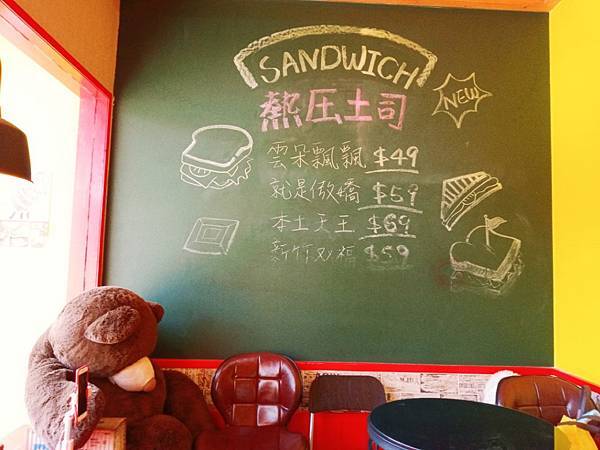 SANDWICH
NEW
熱压土司
雲朵飄飄 $49
就是傲嬌 $59
本土天王 $69
新竹双福 $59